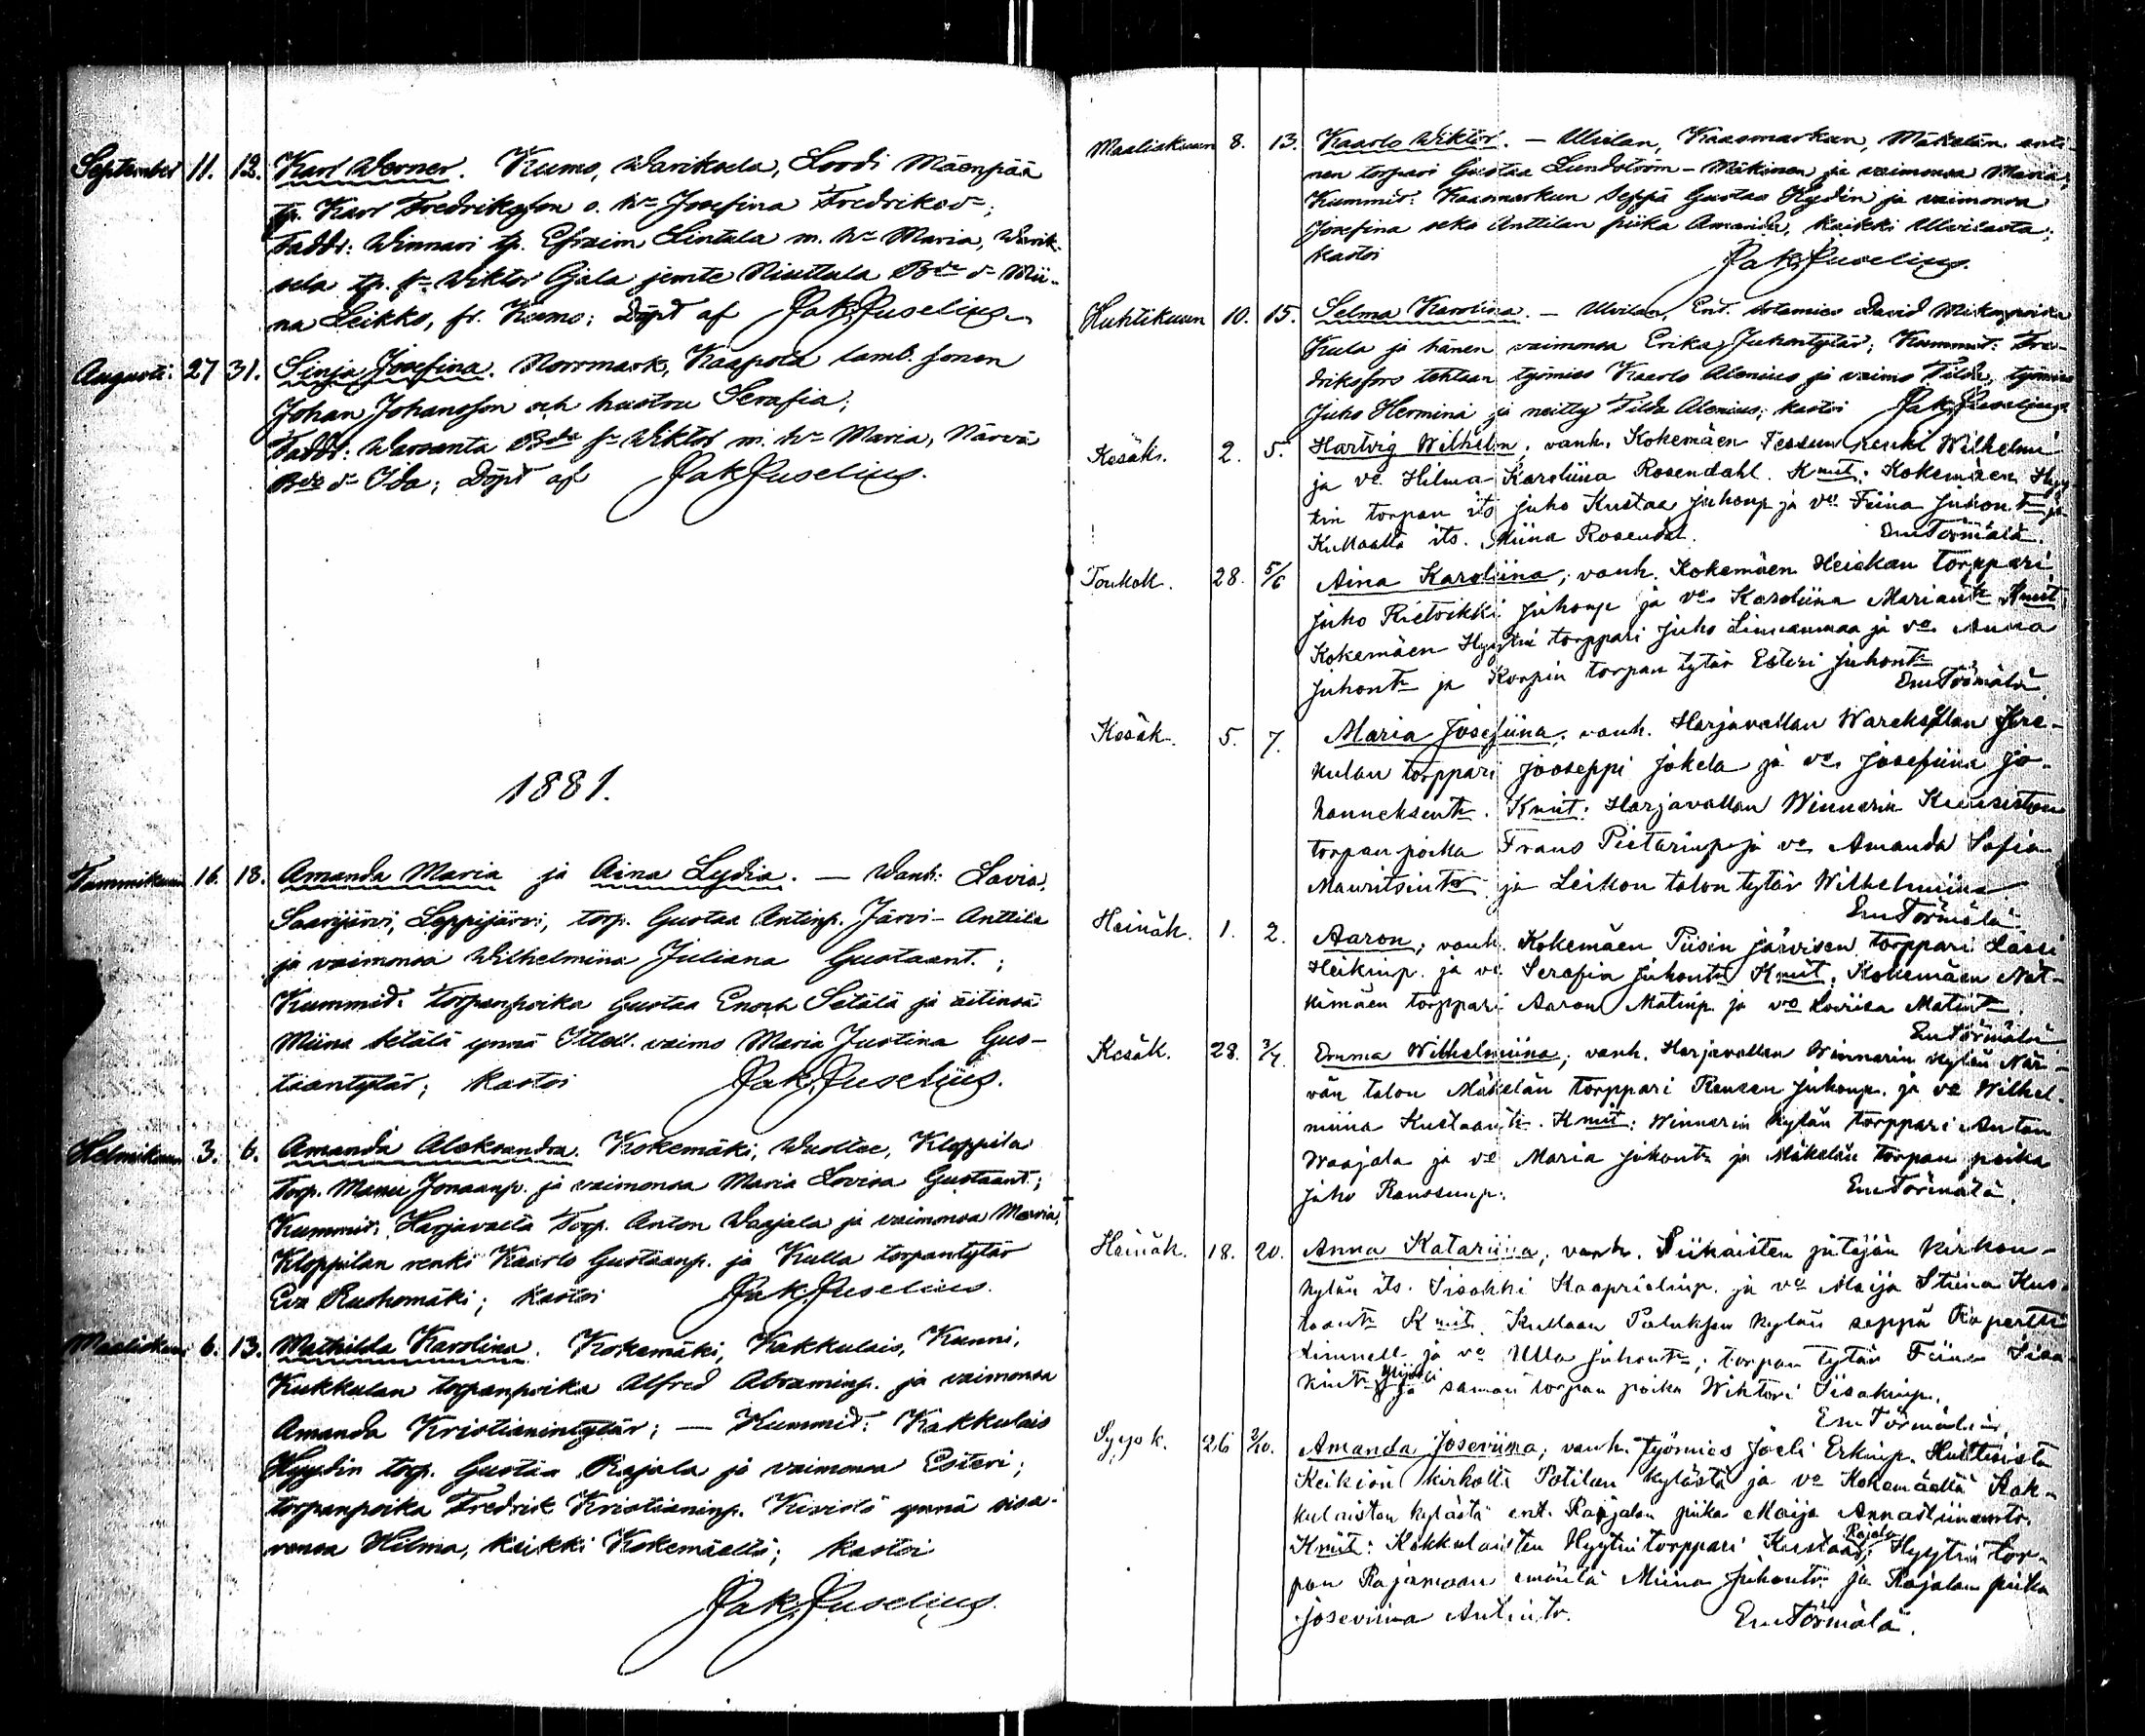 September 11. 12. Karl Werner. Kumo, Wariksela, Loodi Mäenpää
tp. Karl Fredriksson o. h:u Josefina Fredriksd:r;
Faddr: Winnari tp. Efraim Lintala m. h:u Maria, Warik-
sela tp. s:n Wiktor Ojala jemte Niuttula Bde d:r Mii-
na Leikko, fr. Kumo; Döpt af Jak. Juselius
Augusti: 27 31. Sinja Josefina. Norrmark, Kaapola lamb. sonen
Johan Johansson och hustru Serafia;
Faddr: Warsanta Bde s:n Wiktor m. h:u Maria, Närvä
Bde d:r Ida; Döpt af Jak Juselius.
1881.
Tammikuun 16. 18. Amanda Maria ja Aina Lydia. — Wanh: Lavia,
Saarijärvi, Leppijärvi, torp. Gustaa Antinp. Järvi-Anttila
ja vaimonsa Wilhelmina Juliana Gustaant.;
Kummid: Torpanpoika Gustaa Enoch Setälä ja äitinsä
Miina Setälä ynnä Ittell. vaimo Maria Justina Gus-
taantytär; kastoi Jak. Juselius.
Helmikuun 3. 6. Amanda Aleksandra. Kokemäki, Wuolle, Kloppila
torp. Manu Jonaanp. ja vaimonsa Maria Lovisa Gustaant;
Kummid: Harjavalta Torp. Anton Waajala ja vaimonsa Maria,
Kloppilan renki Kaarlo Gustaanp. ja Kulla torpantytär
Eva Ruohomäki; kastoi Jak. Juselius.
Maaliskuun 6. 13. Mathilda Karolina. Kokemäki, Kakkulais, Kunni,
Kukkulan torpanpoika Alfred Abraminp. ja vaimonsa
Amanda Kristianintytär; — Kummid: Kakkulais
Hyydin torp. Gustaa Rajala ja vaimonsa Esteri;
torpanpoika Fredrik Kristianinp. Kivistö ynnä sisa-
rensa Hilma, kaikki Kokemäeltä; kastoi
Jak. Juselius.
Maaliskuun 8. 13. Kaarlo Wiktor. — Ulvilan, Kaasmarkun, Mäkelän enti-
nen torpari Gustaa Lundström-Mäkinen ja vaimonsa Maria;
Kummid: Kaasmarkun Seppä Gustaa Hydin ja vaimonsa
Josefina sekä Anttilan piika Amanda, kaikki Ulvilasta;
kastoi Jak. Juselius.
Huhtikuun 10. 15. Selma Karolina. — Ulvilan, Ent. sotamies David Mikonpoika
Kula ja hänen vaimonsa Erika Juhontytär; Kummid: Fre-
driksfors tehtaan työmies Kaarlo Alenius ja vaimo Tilda, työmies
Juho Hermina ja neitty Tilda Alenius; kastoi Jak. Juselius.
Kesäk. 2. 5. Hartvig Wilhelm; vanh. Kokemäen renki Wilhelmi
ja v:o Hilma Karoliina Rosendahl. Kmit: Kokemäen Hyy-
tin torpan its Juho Kustaa Juhonp ja v:o Fiina Juhont ja
Kullaalta its. Miina Rosendal. Em Törmälä.
Toukok. 28. 5/6 Aina Karoliina; vanh. Kokemäen Heiskan torppari
Juho Rietrikki Juhonp ja v:o Karoliina Mariant. Kmit
Kokemäen Hyytin torppari Juho Linnanmaa ja v:o Anna
Juhont ja Korpin torpan tytär Esteri Juhont
Em Törmälä.
Kesäk. 5. 7. Maria Josefiina; vanh. Harjavallan Warekselan
kulan torppari Jooseppi Jokela ja v:o Josefiina Jo-
hanneksent. Kmit: Harjavallan Winnarin
torpan poika Frans Pietarinp ja v:o Amanda Sofia
Mauritsint. ja Leikon talon tytär Wilhelmiina
Em Törmälä
Heinäk. 1. 2. Aaron; vanh. Kokemäen Piisin järvisen torppari Lassi
Heikinp. ja v:o Serafia Juhont. Kmit; Kokemäen Nät-
kimäen torppari Aaron Matinp. ja v:o Loviisa Matint.
Em Törmälä
Kesäk. 28. 3/7. Emma Wilhelmiina; vanh. Harjavallan Winnarin kylän När-
vän talon Mäkelän torppari Ransen Juhonp. ja v:o Wilhel-
miina Kustaant. Kmit: Winnarin kylän torppari Anton
Waajala ja v:o Maria Juhont ja Mäkelän torpan poika
Juho Ranssunp. Em Törmälä.
Heinäk. 18. 20. Anna Katariina; vanh. Siikaisten pitäjän kirkon-
kylän its. Iisakki Kaaprielinp. ja v:o Maija Stiina Kus-
taant. Kmit. Kullaan Paluksen kylän seppä Ropertti
Linnell ja v:o Ulla Juhont; torpan tytär Fiina Iisa-
kint ja saman torpan poika Wihtori Iisakinp.
Em Törmälä.
Syysk. 26 2/10. Amanda Joseviina; vanh. Työmies Joeli Erkinp. Huittisista
Keikiön kirkolta Potilan kylästä ja v:o Kokemäeltä Kak-
kulaisten kylästä ent. Raajalan piika Maija Annastiinantr.
Kmit: Kakkulaisten Hyytin torppari Kustaa Rajala; Hyytin tor-
pan Rajamaan emäntä Miina Juhontr. ja Rajalan piika
Joseviina Antintr. Em Törmälä.